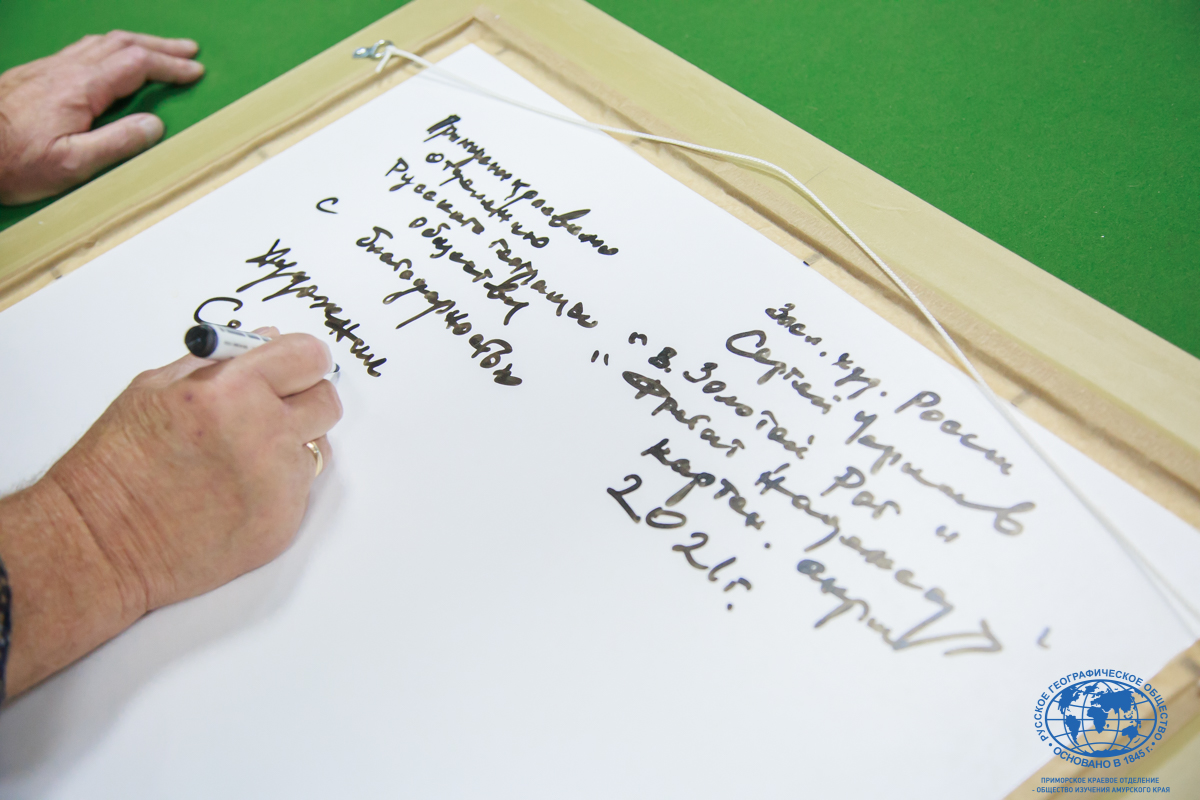 Приморскому краевому
отделению
Русского географ.
общества
с благодарностью
Художник
С
Засл. худ. России
Сергей Черкасов
"В. Золотой Рог"
"Фрегат Надежда"
картон. акрил
2021г.
РУССКОЕ ГЕОГРАФИЧЕСКОЕ ОБЩЕСТВО
• ОСНОВАНО В 1845 г. •
ПРИМОРСКОЕ КРАЕВОЕ ОТДЕЛЕНИЕ
- ОБЩЕСТВО ИЗУЧЕНИЯ АМУРСКОГО КРАЯ